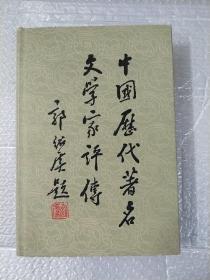 中國歷代著名
文学家评傳
郭绍虞題